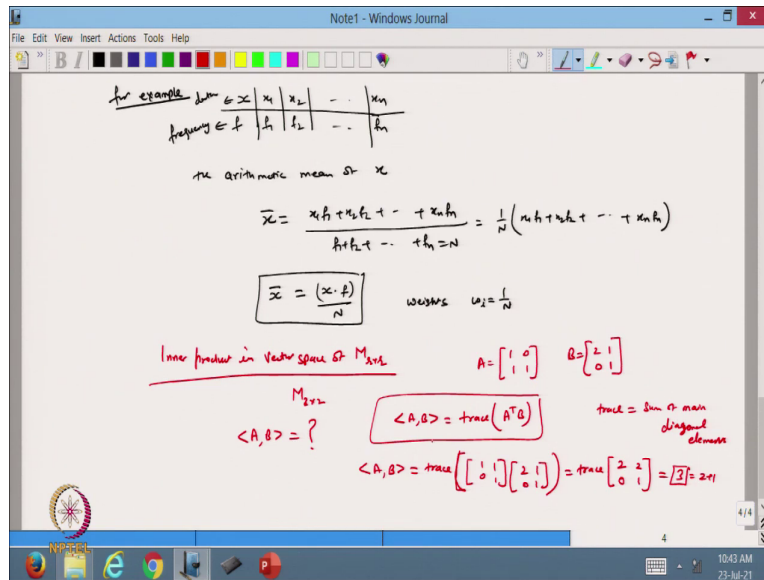 Note1 - Windows Journal
File Edit View Insert Actions Tools Help
for example data ∈ x | x1 | x2 | - - | xn
frequency ∈ f | f1 | f2 | - - | fn
the arithmetic mean of x
x̄ = (x1f1+x2f2+ - - + xnfn) / (f1+f2+ - - +fn=N) = 1/N (x1f1+x2f2+ - - + xnfn)
x̄ = (x·f)/N weights wi = 1/N
Inner product in vector space of M2x2 A = [1 0; 1 1] B = [2 1; 0 1]
M2x2
<A,B> = ? <A,B> = trace(A^T B) trace = sum of main diagonal elements
<A,B> = trace([1 1; 0 1][2 1; 0 1]) = trace[2 2; 0 1] = 3 = 2+1
4/4
4
NPTEL
10:43 AM
23-Jul-21